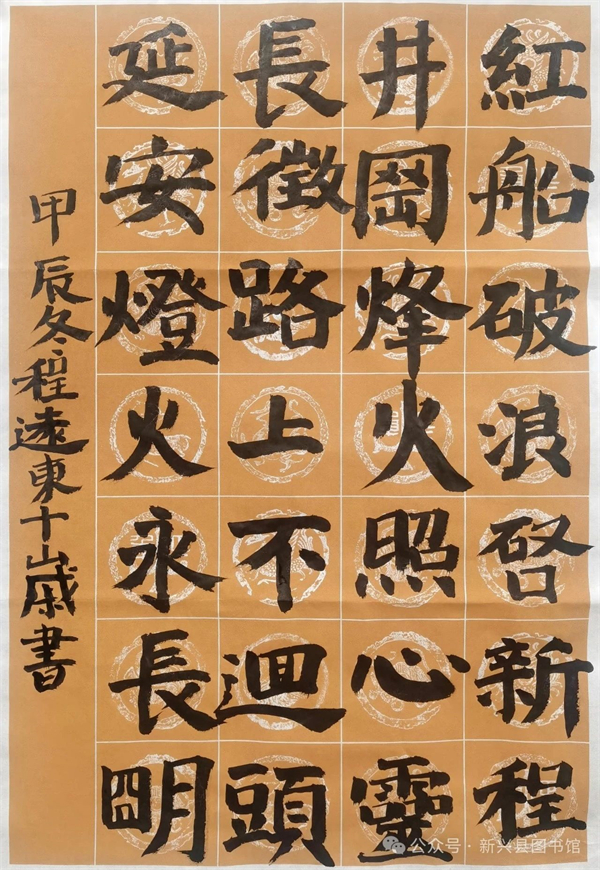 紅船破浪啓新程
井岡烽火照心靈
長徵路上不迴頭
延安燈火永長明
甲辰冬程遠東十歲書
公众号·新兴县图书馆